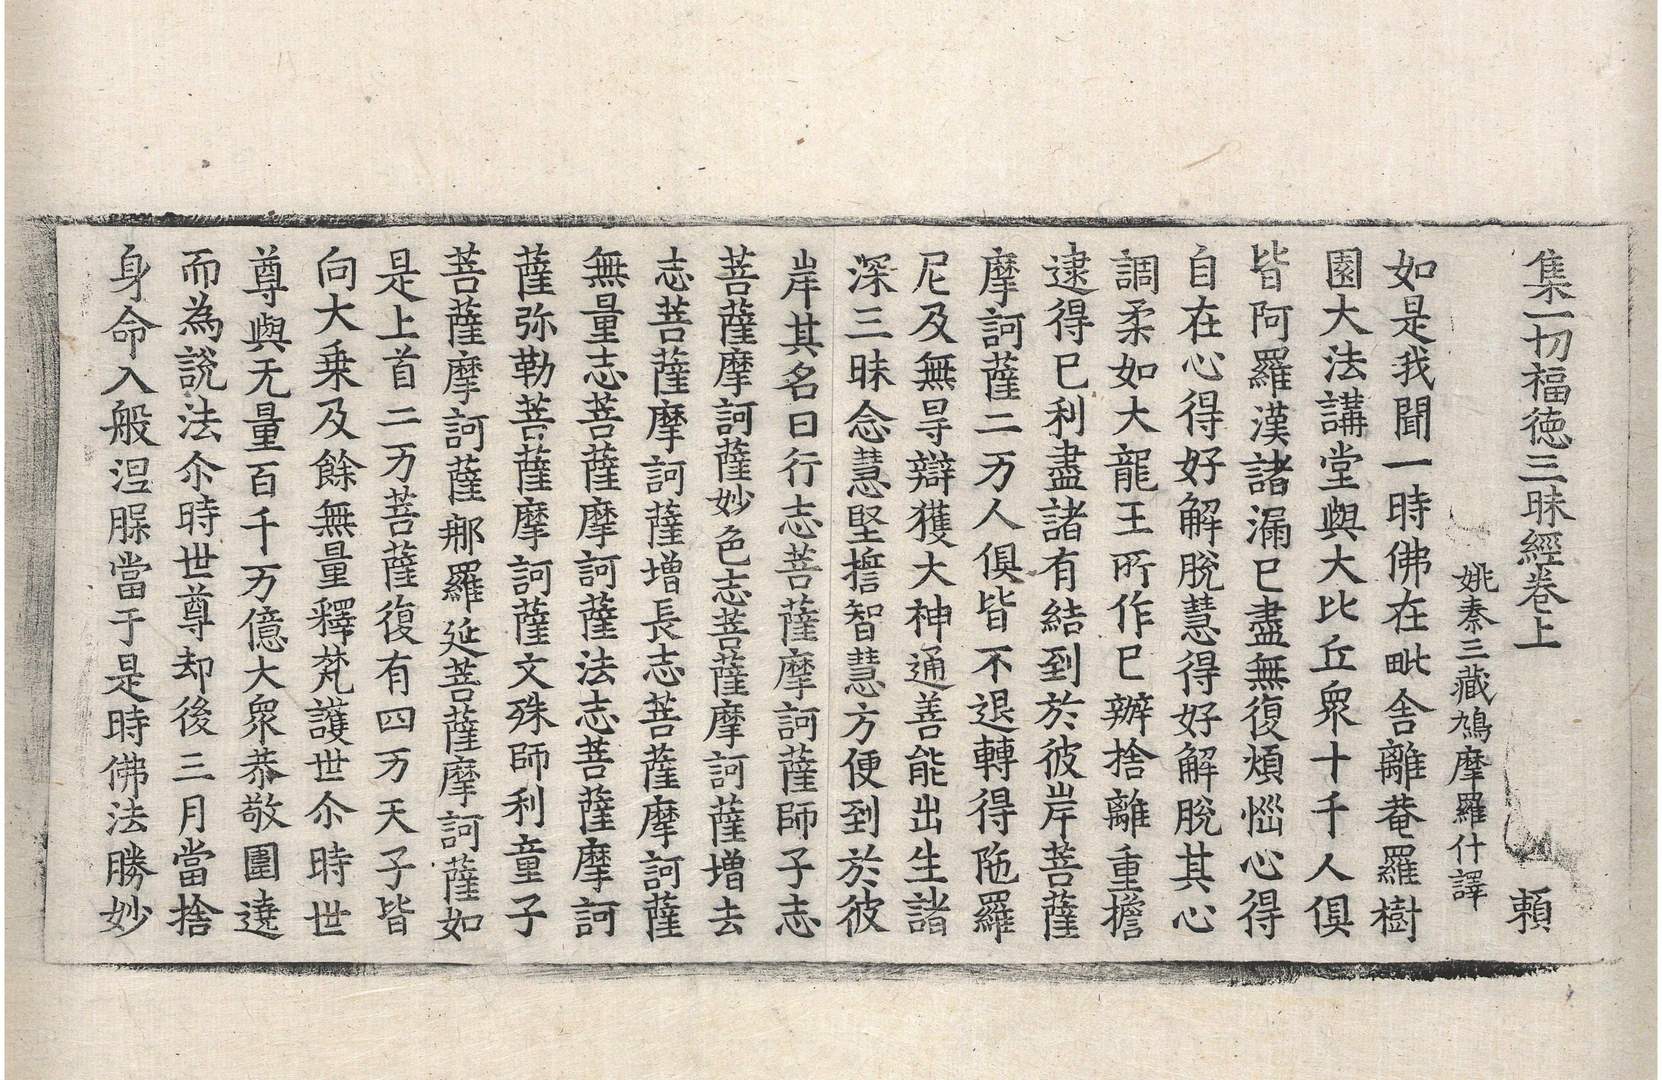 集一切福徳三昧經卷上 頼
姚秦三藏鳩摩羅什譯
如是我聞一時佛在毗舎離菴羅樹
園大法講堂與大比丘衆十千人俱
皆阿羅漢諸漏已盡無復煩惱心得
自在心得好解脫慧得好解脫其心
調柔如大龍王所作已辦捨離重擔
逮得已利盡諸有結到於彼岸菩薩
摩訶薩二万人俱皆不退轉得陁羅
尼及無㝵辯獲大神通善能出生諸
深三昧念慧堅擔智慧方便到於彼
岸其名曰行志菩薩摩訶薩師子志
菩薩摩訶薩妙色志菩薩摩訶薩增去
志菩薩摩訶薩增長志菩薩摩訶薩
無量志菩薩摩訶薩法志菩薩摩訶
薩弥勒菩薩摩訶薩文殊師利童子
菩薩摩訶薩那羅延菩薩摩訶薩如
是上首二万菩薩復有四万天子皆
向大乘及餘無量釋梵護世尒時世
尊與无量百千万億大衆恭敬圍遶
而為說法尒時世尊却後三月當捨
身命入般涅脲當于是時佛法勝妙